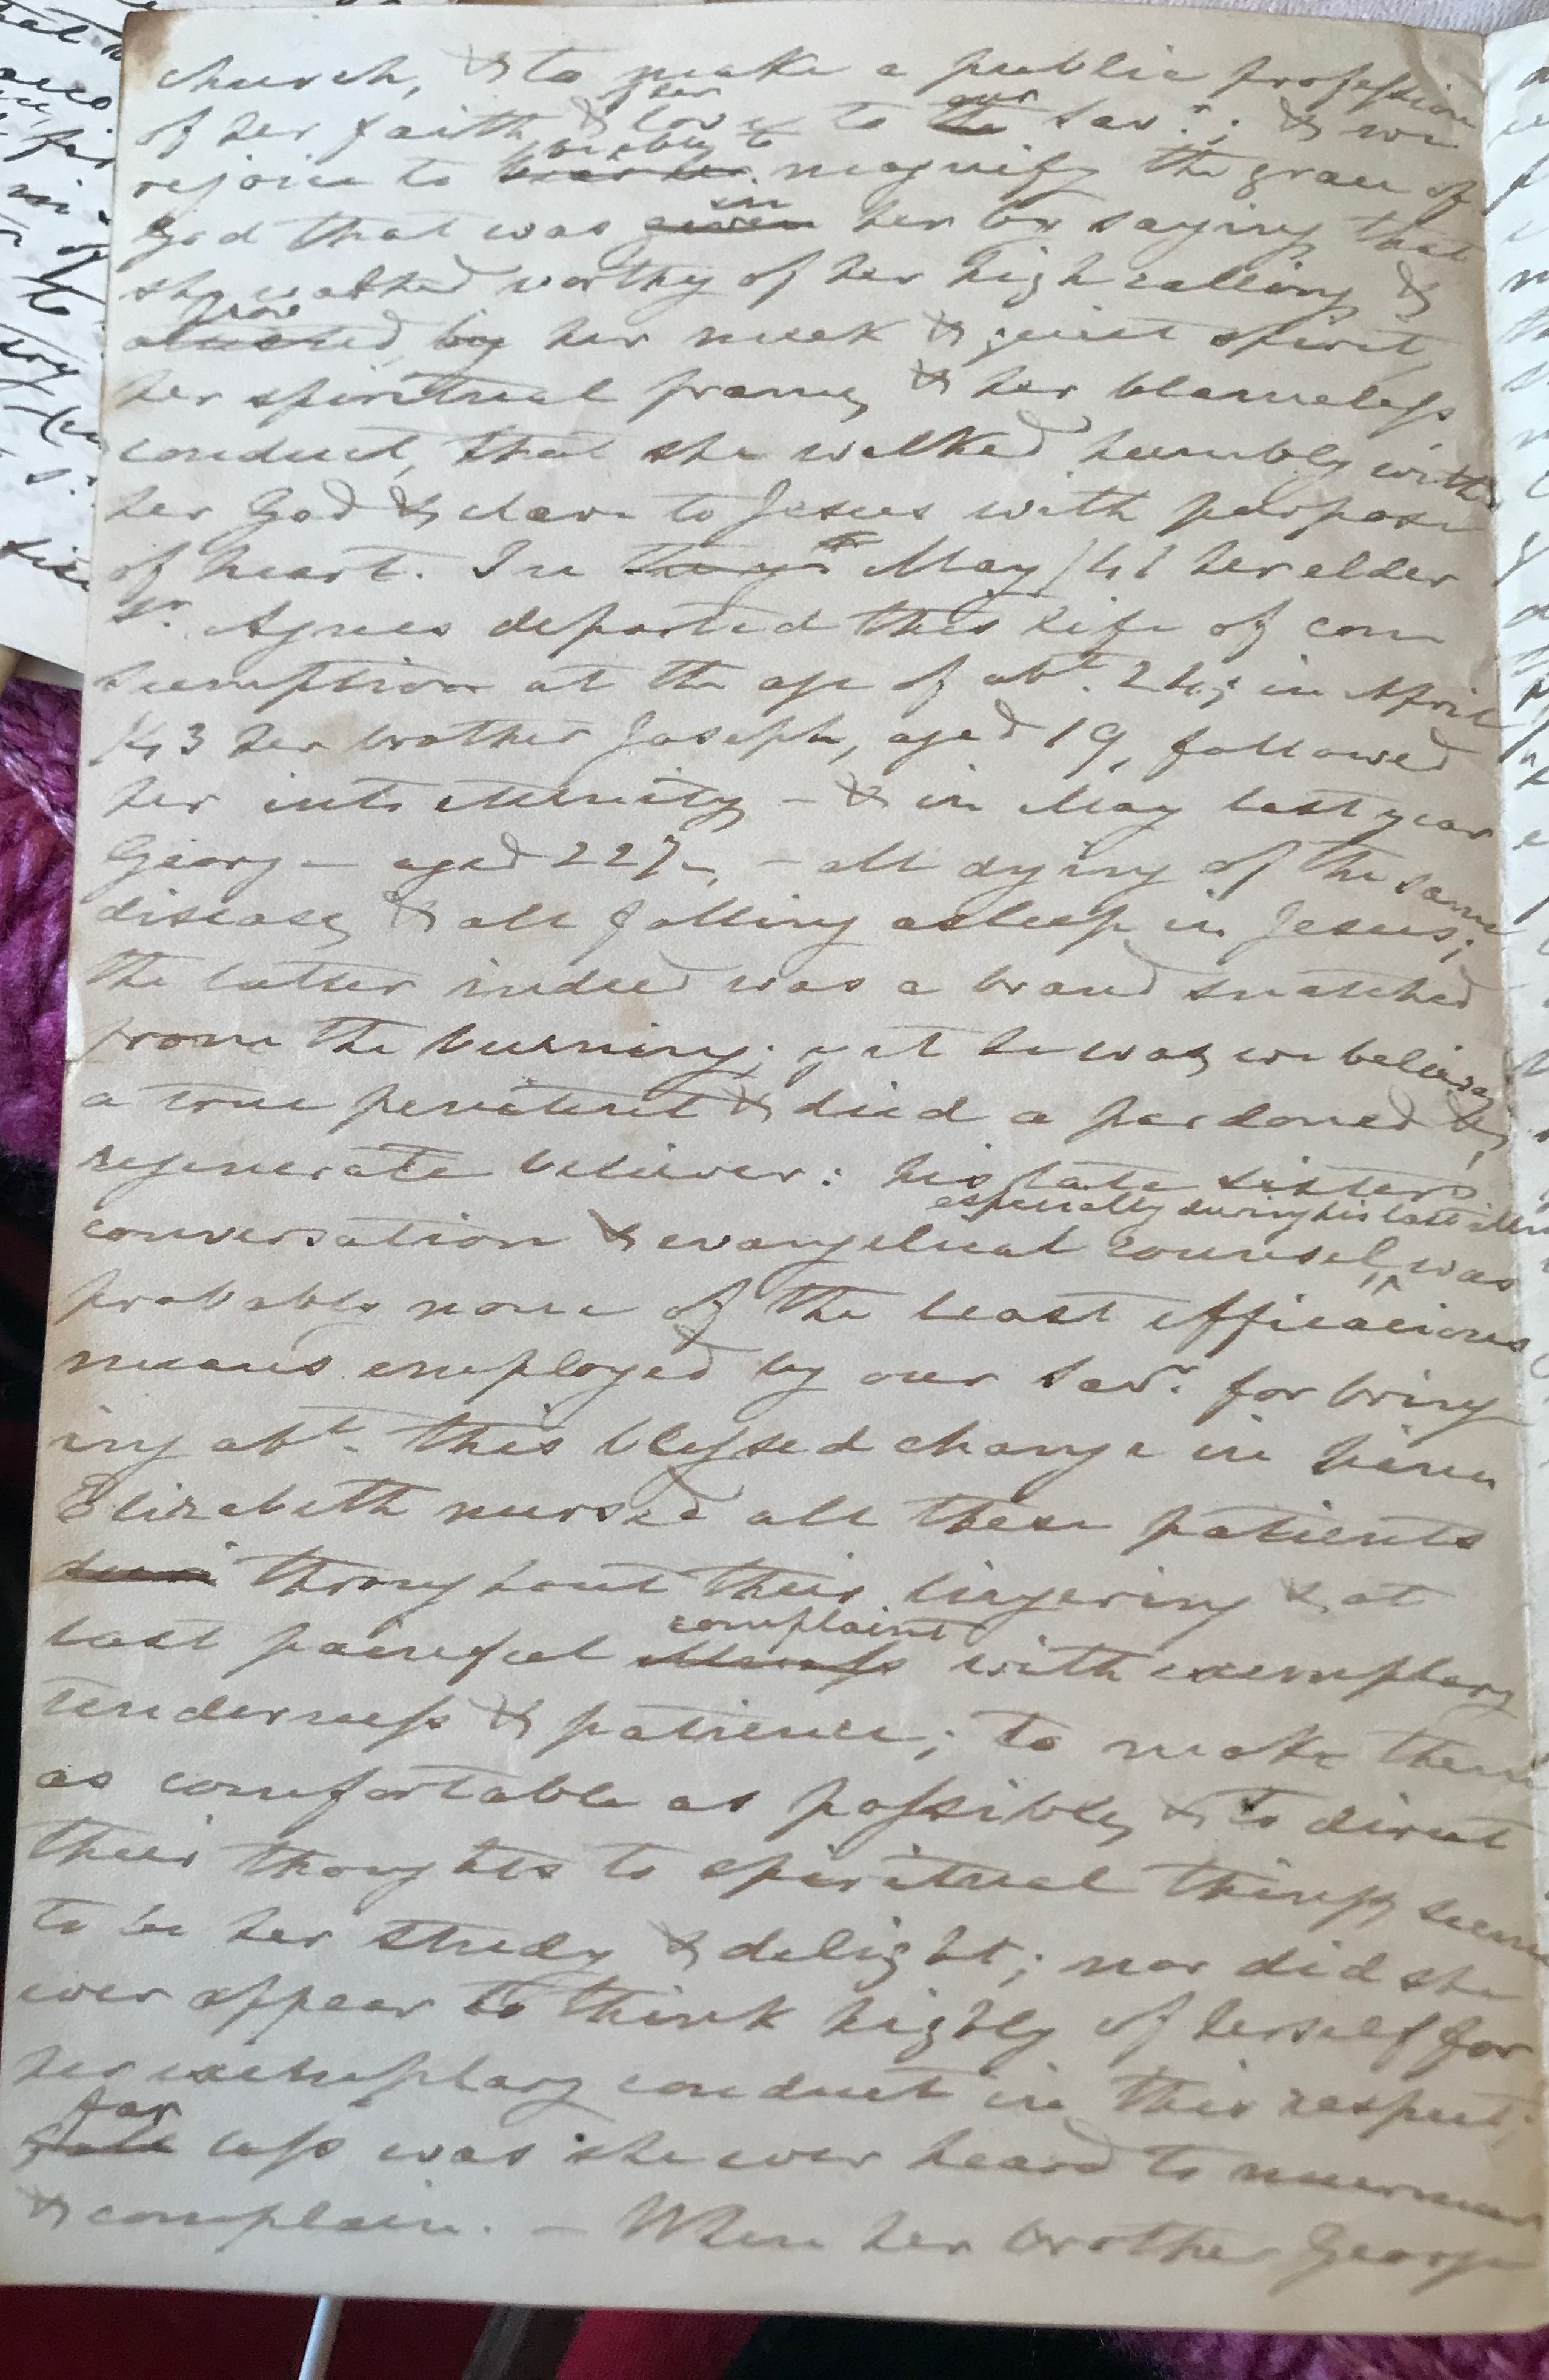 church, & to make a public profession
of her faith & her love to our Savr.; & we
rejoice to be able to magnify the grace of
God that was in her by saying that
she walked worthy of her high calling, &
her meek & quiet spirit,
her spiritual frame, & her blameless
conduct, that she walked humbly with
her God & clave to Jesus with purpose
of heart. In May /41 her elder
Sr. Agnes departed this life of con
sumption at the age of abt. 24; in April
/43 her brother Joseph, aged 19, followed
her into eternity - & in May last year
George aged 22 - all dying of the same
disease, & all falling asleep in Jesus;
the latter indeed was a brand snatched
from the burning; yet he was, we believe,
a true penitent & died a pardoned &
regenerate believer: his late sister's
conversation & evangelical counsel, especially during his last illness was
probably none of the least efficacious
means employed by our Savr. for bring
ing abt. this blessed change in him
Elizabeth nursed all these patients
throughout their lingering & at
last painful complaint with exemplary
tenderness & patience; to make them
as comfortable as possible, & to direct
their thoughts to spiritual things, seemed
to be her study & delight; nor did she
ever appear to think highly of herself for
her exemplary conduct in this respect;
far less was she ever heard to murmur
& complain. - When her brother George